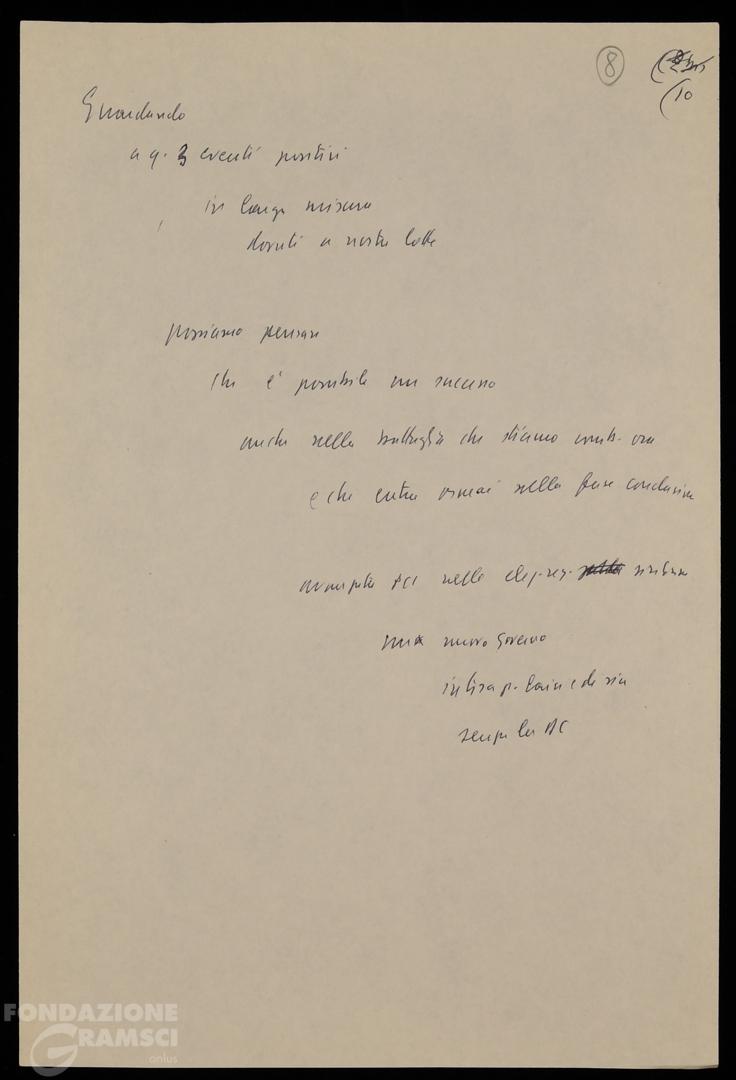 8
(10
Guardando
a q. 3 eventi positivi
in larga misura
dovuti a nostre lotte
possiamo pensare
che è possibile un successo
anche nella battaglia che stiamo comb. ora
e che entra ormai nella fase conclusiva
avanzata PCI nelle elez. reg.
nuovo Governo
senza la DC
FONDAZIONE
GRAMSCI
onlus